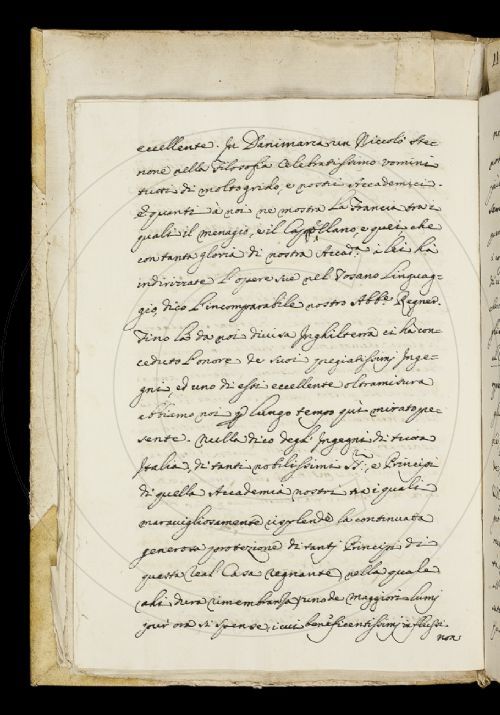 eccellente. In Danimarca un Niccolò Ste-
none nella Filosofia Celebratissimo uomini
tutti di molto grido, e nostri Accademici.
E quanti à noi ne mostrò la Francia tra i
quali il menagio, e il Cappellano, e quei che
con tanta gloria di nostra Accad.ª i lei hà
indirizzate l'opere sue nel Tosano linguag-
gio, dico l'incomparabile nostro Abb.e Regner.
Fino la da noi divisa Inghilterra ci ha con-
ceduto l'onore de suoi pregiatissimj Inge-
gni, ed uno di essi eccellente oltramisura
abbiamo noi p lungo tempo quì mirato pre-
sente. Nulla dico degl'Ingegni di tutta
Italia, di tanti nobilissimi Sri, e Principi
di quella Accademia nostri na i quali
maravigliosamente risplende la continuata
generosa protezione di tantj Principi di
questa Real Casa regnante, nella quale
ahi dura rimembranza, uno de maggiori lumj
pour ora si spense, i cui beneficentissimj influssi
non